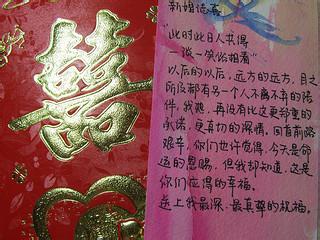 囍
新婚志喜
"此时此日人共得
一谈一笑俗相看"
以后的以后，远方的远方，目之
所及都有另一个人不离不弃的陪
伴，我想，再没有比这更郑重的
承诺，更真切的深情，回首前路
艰辛，你们也许觉得，今天是命
运的恩赐，但我却知道，这是
你们应得的幸福。
送上我最深、最真挚的祝福。